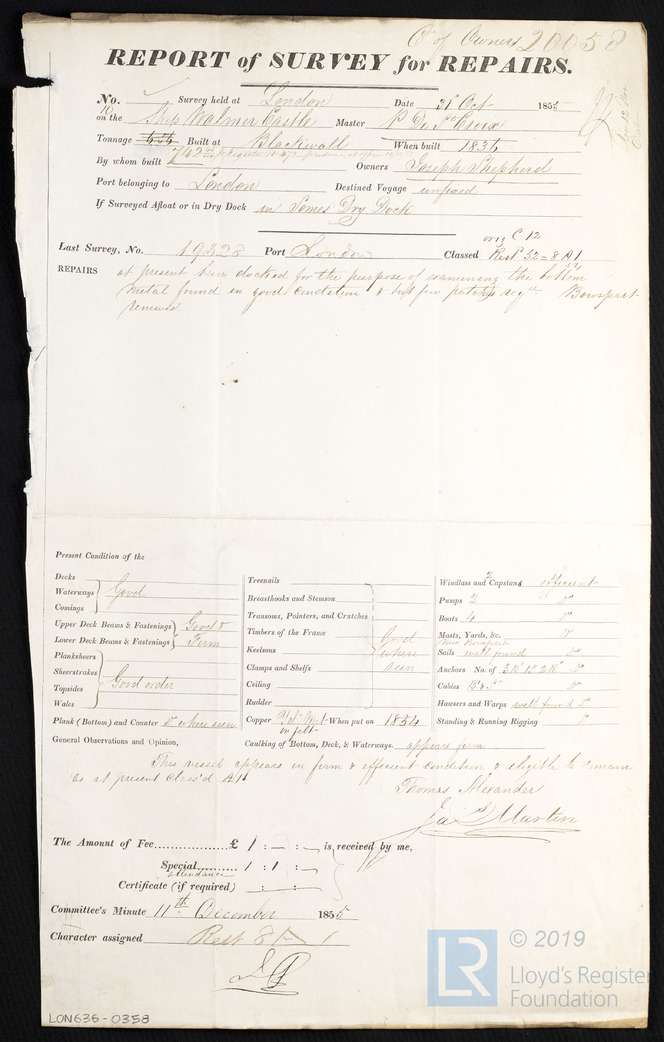 Cy of Owners 20058
REPORT of SURVEY for REPAIRS.
No. Survey held at London Date 31st Oct 1855
on the Ship Walmer Castle Master P De Ste Croix
Tonnage 656 Built at Blackwall When built 1836
By whom built 742 Owners Joseph Shepherd
Port belonging to London Destined Voyage unfixed
If Surveyed Afloat or in Dry Dock in Somes Dry Dock
orig C 12
Last Survey, No. 19328 Port London Classed Rest 52 = 8 A1
REPAIRS at present been docked for the purpose of examining the bottom
metal found in good condition & but few patches reqd Bowsprit
renewed
Present Condition of the
Decks
Waterways Good
Comings
Upper Deck Beams & Fastenings Good &
Lower Deck Beams & Fastenings Firm
Planksheers
Sheerstrakes
Topsides Good order
Wales
Plank (Bottom) and Counter Do where seen
Treenails
Breasthooks and Stemson
Transoms, Pointers, and Crutches
Timbers of the Frame Good
Keelsons where
Clamps and Shelfs seen
Ceiling
Rudder
Copper Yel Metl When put on 1854
on felt
Caulking of Bottom, Deck, & Waterways. appears firm
Windlass and 2 Capstans efficient
Pumps 2 Do
Boats 4 Do
Masts, Yards, &c. Do
New Bowsprit
Sails well found Do
Anchors No. of 3 Br 1 St 2 Kd Do
Cables Do
Hawsers and Warps well found Do
Standing & Running Rigging Do
General Observations and Opinion,
This vessel appears in firm & efficient condition & eligible to remain
as at present Class'd A1
Thomas Alexander
Jas Martin
The Amount of Fee £ 1 : — : — is received by me,
Special 1 : 1 : —
attendance
Certificate (if required) — : — : —
Committee's Minute 11th December 1855
Character assigned Rest 8 A 1
© 2019
LR
Lloyd's Register
Foundation
LON636-0358